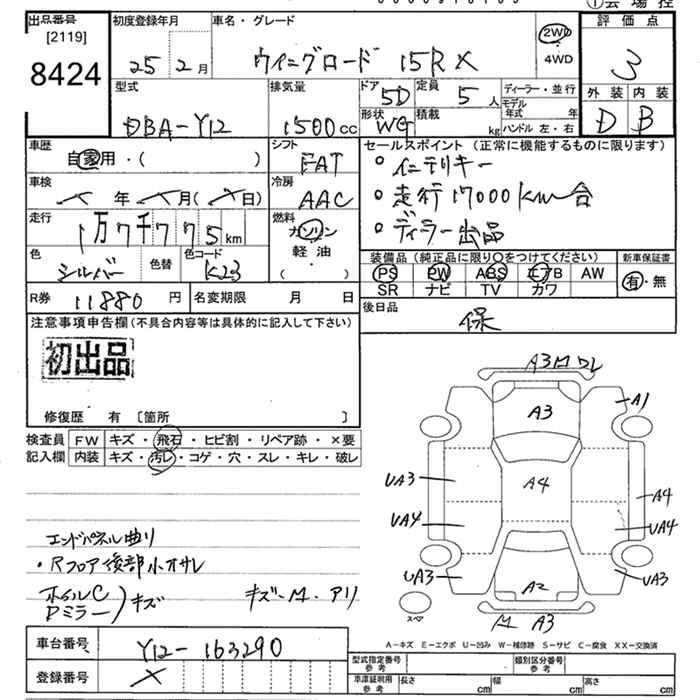 出品番号
[2119]
8424
初度登録年月
25 年 2 月
車名・グレード
ウィングロード 15RX
2WD
・
4WD
評価点
3
外装 内装
D B
型式
DBA-Y12
排気量
1500cc
ドア
5D
定員
5人
形状
WG
積載
kg
ディーラー・並行
モデル
年式 年
ハンドル 左・右
車歴
自家用・( )
シフト
FAT
車検
年 月( 日)
冷房
AAC
走行
1万7千775km
燃料
ガソリン
軽油
( )
色
シルバー
色替
色コード
K23
R券 11880 円
名変期限 月 日
セールスポイント(正常に機能するものに限ります)
・インテリキー
・走行17000km台
・ディラー出品
装備品(純正品に限り○をつけてください)
PS PW ABS エアB AW
SR ナビ TV カワ
新車保証書
有・無
後日品
保
注意事項申告欄(不具合内容等は具体的に記入して下さい)
初出品
修復歴 有 [箇所 ]
検査員
記入欄
FW キズ・飛石・ヒビ割・リペア跡・×要
内装 キズ・汚レ・コゲ・穴・スレ・キレ・破レ
エンドパネル曲り
・Rフロア後部小オサレ
ホイルC
Dミラー)キズ
キズ・M・アリ
A3 M DL
A3
A1
UA3
A4
A4
UA4
UA4
UA3
A2
UA3
スペア
M A3
A-キズ E-エクボ U-凹み W-補修跡 S-サビ C-腐食 XX-交換済
車台番号 Y12-163290
登録番号 ×
型式指定番号
参考
類別区分番号
参考
車庫証明用
参考
長さ cm 幅 cm 高さ cm